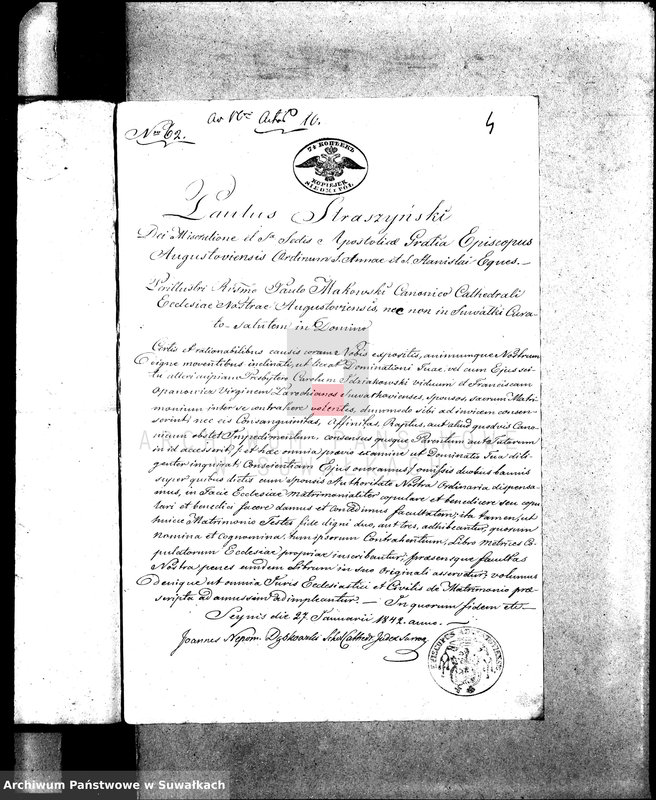 No 62.
Ad No Actor 16.
4
7½ КОПѢЕКЪ
KOPIEJEK
Paulus Straszyński
Dei Miseratione et Sae Sedis Apostolicæ Gratia Episcopus
Augustoviensis Ordinum S. Annae et S. Stanislai Eques.—
Perillustri Paulo Makowski Canonico Cathedrali
Ecclesiae Nostrae Augustoviensis, nec non in Suwałki Cura-
to- salutem in Domino
Certis et rationabilibus causis coram Nobis expositis, animumque Nostrum
digne moventibus inclinati, ut liceat Dominationi Tuae vel cum Ejus sci-
tu alteri cuipiam Presbytero Carolum viduum et Franciscam
Virginem Parochianos Suwałkovienses, Sponsos, sacrum Matri-
monium inter se contrahere volentes, dummodo sibi ad invicem consen-
serint; nec eis Consanguinitas, Affinitas Raptus, aut aliud quodvis Cano-
nicum obstet Impedimentum, consensus quoque Parentum aut Tutorum
in id accesserit, et hæc omnia praevio examine ut Dominatio Tua dili-
genter inquirat Conscientiam Ejus oneramus / omissis duobus bannis
super quibus dictis cum sponsis Authoritate Nostra Ordinaria dispensa-
mus, in facie Ecclesiae matrimonialiter copulare et benedicere seu copu-
lari et benedici facere damus et concedimus facultatem; ita tamen, ut
huic Matrimonio Testes fide digni duo, aut tres, adhibeantur, quorum
Nomina et Cognomina tum ipsorum Contrahentium, Libro Metrices Co-
pulatorum Ecclesiae propriae inscribantur, præsensque facultas
Nostra penes eundem Librum in suo Originali asservetur, volumus
denique ut omnia Juris Ecclesiastici et Civilis de Matrimonio præ-
scripta ad amussim adimpleantur.— In quorum fidem etc.—
Seynis die 27 Januarii 1842. anno.—
Joannes Nepom.
Archiwum Państwowe w Suwałkach